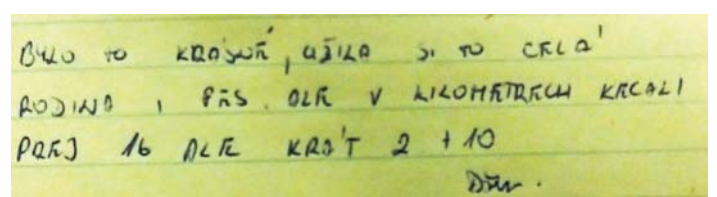 BYLO TO KRÁSNÉ, UŽILA SI TO CELÁ
RODINA I PES. ALE V KILOMETRECH KECALI
PREJ 16 ALE KRÁT 2 + 10